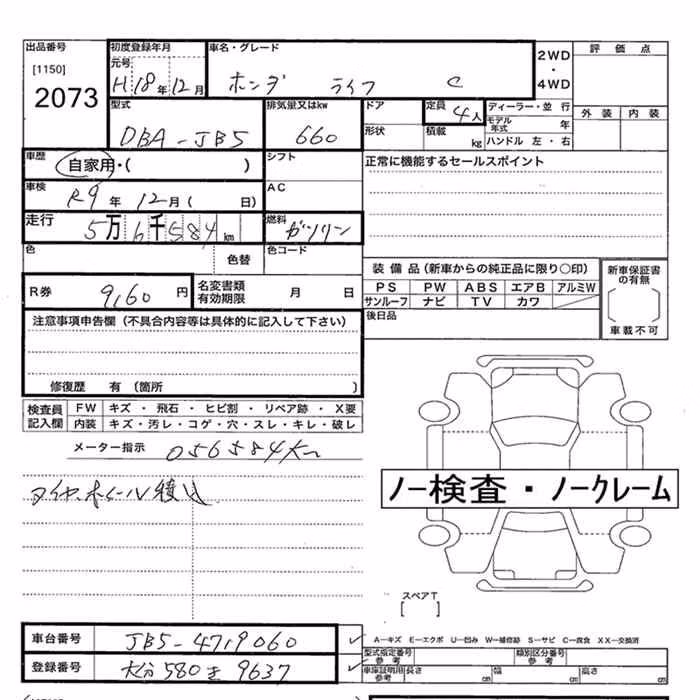 出品番号 初度登録年月 車名・グレード 評価点
[1150] 元号 2WD
2073 H18年12月 ホンダ ライフ C ・
4WD
型式 排気量又はkw ドア 定員 4人 ディーラー・並行 外装 内装
DBA-JB5 660 形状 積載 kg モデル年式 年
ハンドル 左・右
車歴 自家用・( ) シフト 正常に機能するセールスポイント
車検 R9年12月( 日) AC
走行 5万6千584km 燃料 ガソリン
色 色替 色コード
装備品(新車からの純正品に限り○印) 新車保証書の有無
R券 9,160円 名変書類有効期限 月 日 PS PW ABS エアB アルミW
サンルーフ ナビ TV カワ
注意事項申告欄(不具合内容等は具体的に記入して下さい) 後日品 車載不可
修復歴 有(箇所 )
検査員記入欄 FW キズ・飛石・ヒビ割・リペア跡・X要
内装 キズ・汚レ・コゲ・穴・スレ・キレ・破レ
メーター指示 056584km
タイヤ、ホイール積込
ノー検査・ノークレーム
スペアT
[ ]
車台番号 JB5-4719060 A-キズ E-エクボ U-凹み W-補修跡 S-サビ C-腐食 XX-交換済
型式指定番号 参考 類別区分番号 参考
登録番号 大分580 9637 車庫証明用参考 長さ cm 幅 cm 高さ cm